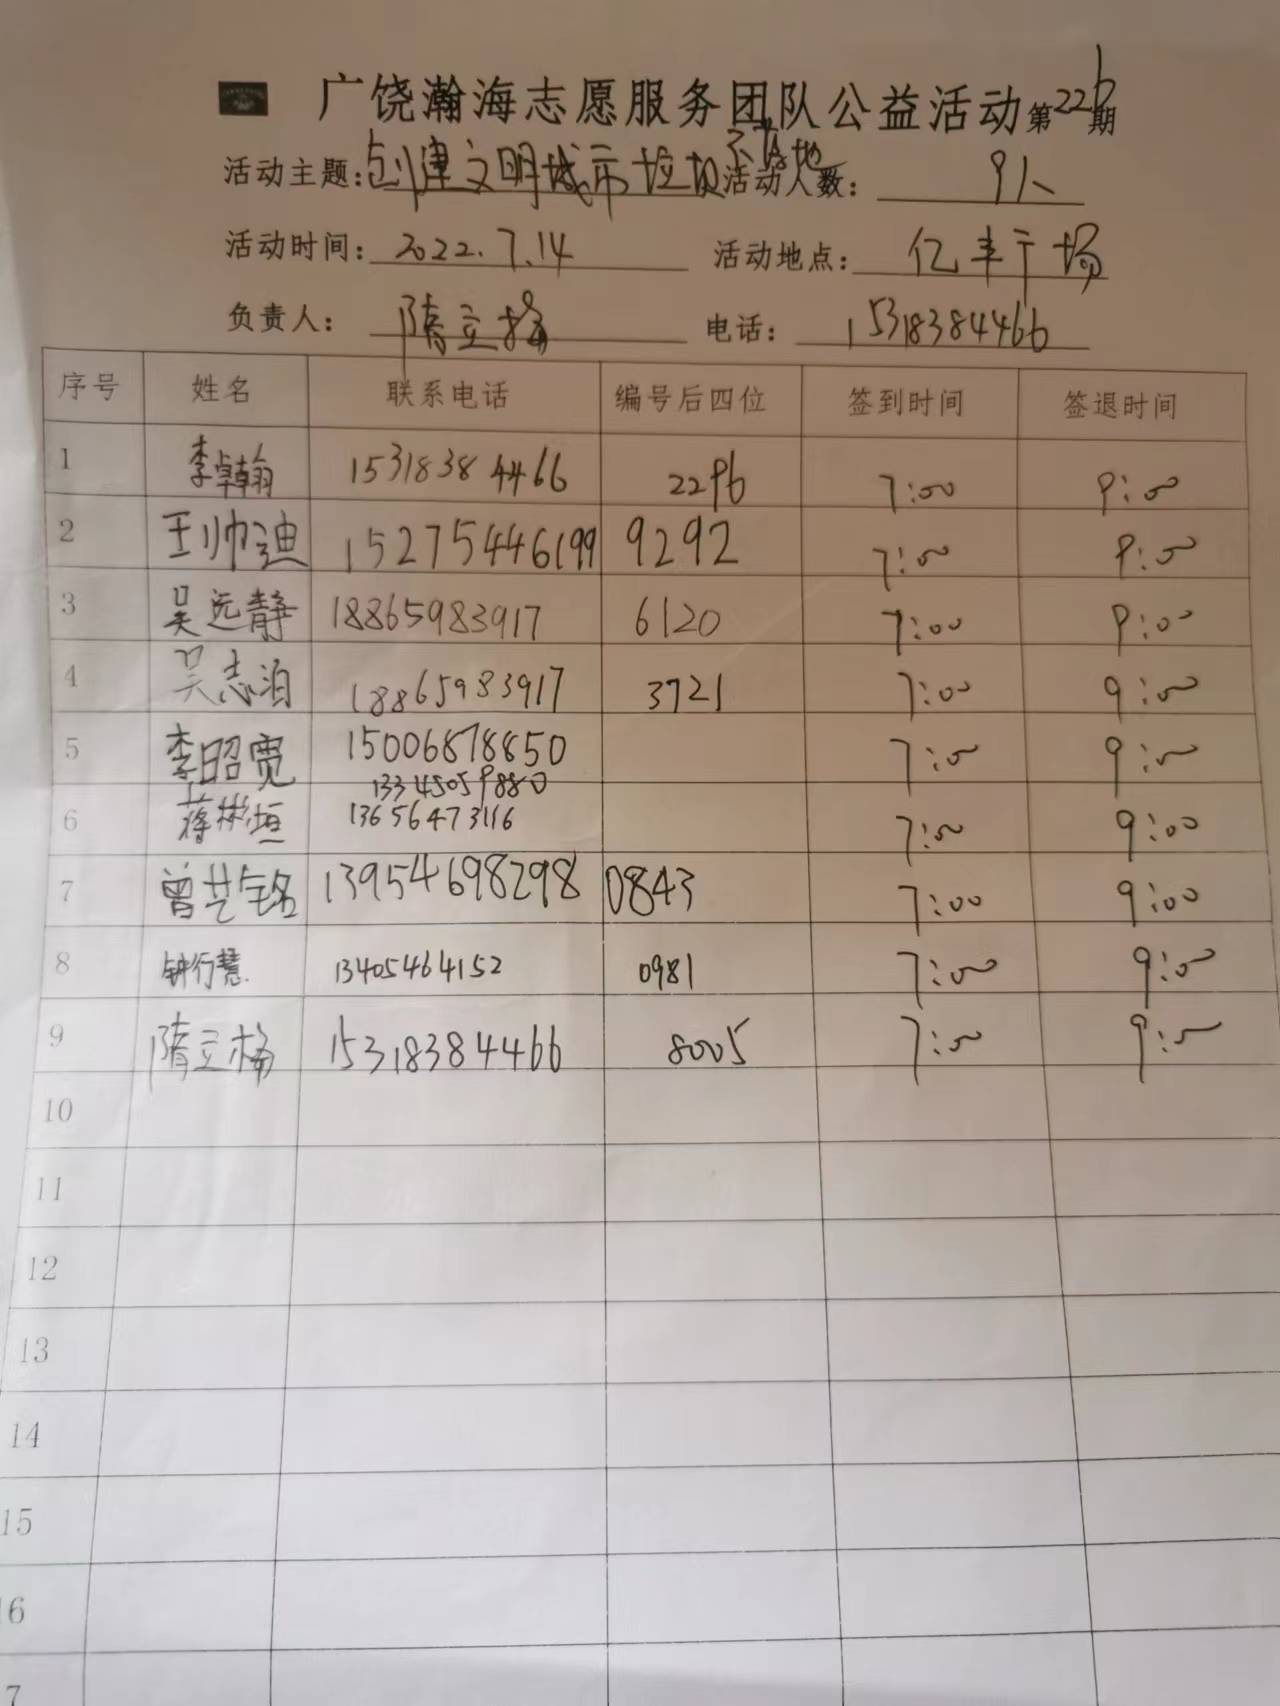 广饶瀚海志愿服务团队公益活动第226期
活动主题:创建文明城市垃圾不落地 活动人数:9人
活动时间:2022.7.14 活动地点:亿丰广场
负责人:隋立梅 电话:15318384466
序号 姓名 联系电话 编号后四位 签到时间 签退时间
1 李卓翰 15318384466 2296 7:00 9:00
2 王帅迪 15275446199 9292 7:00 9:00
3 吴远静 18865983917 6120 7:00 9:00
4 吴志泊 18865983917 3721 7:00 9:00
5 李昭宽 15006878850 7:00 9:00
13345059880
6 蒋彬垣 13656473116 7:00 9:00
7 曾艺铭 13954698298 0843 7:00 9:00
8 钟行慧 13405464152 0981 7:00 9:00
9 隋立梅 15318384466 8005 7:00 9:00
10
11
12
13
14
15
16
7